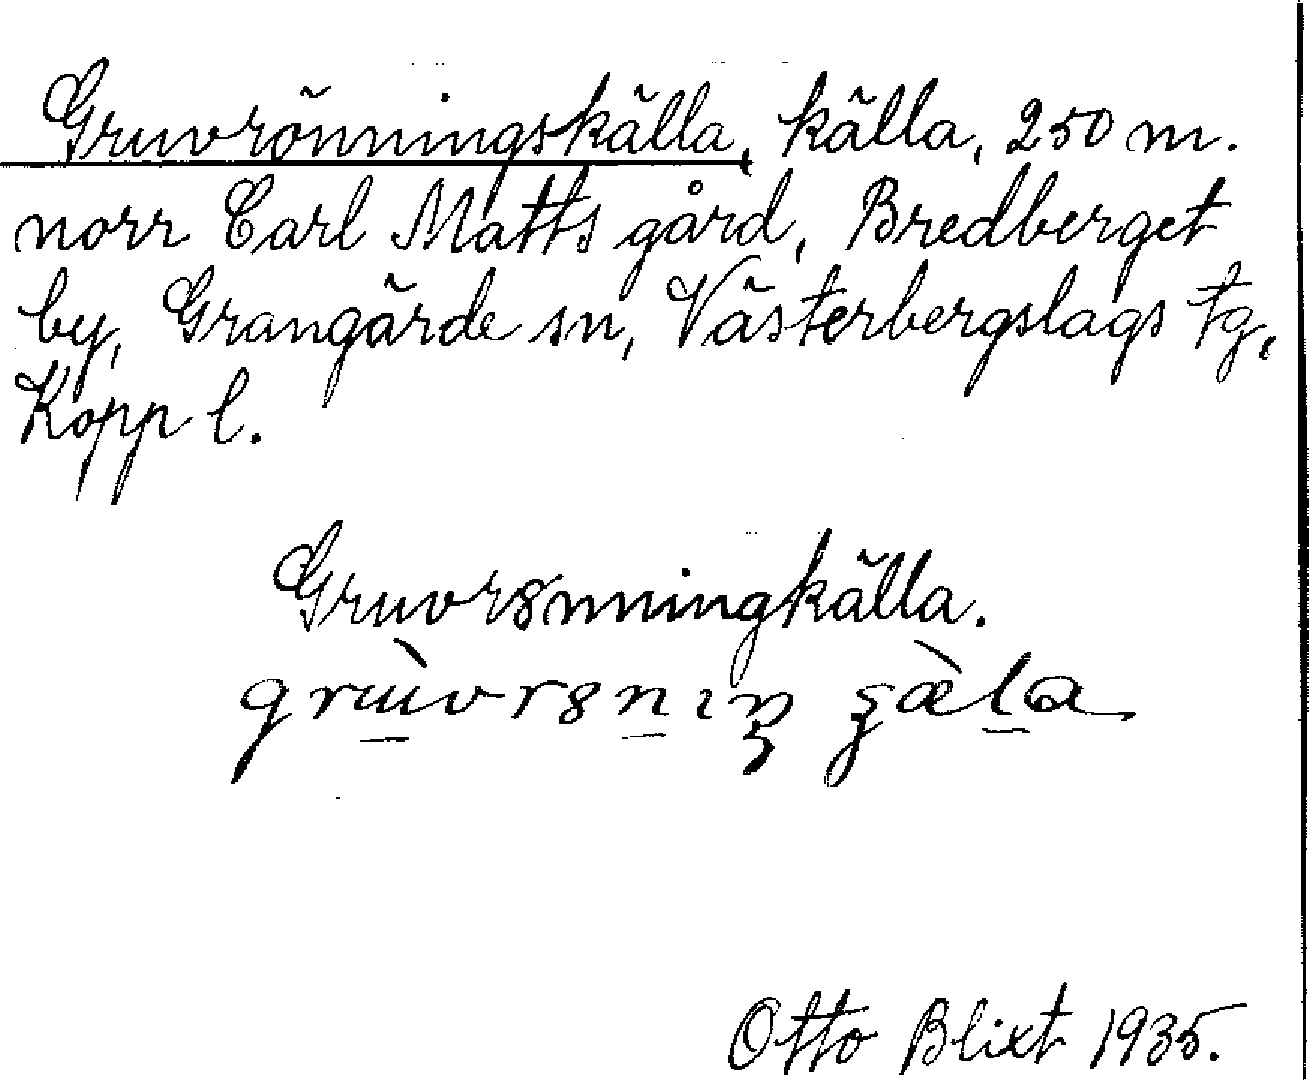 Gruvrönningskälla, källa, 250 m.
norr Carl Matts gård, Bredberget
by, Grangärde sn, Västerbergslags tg,
Kopp l.
Gruvrȣnningkälla.
Otto Blixt 1935.